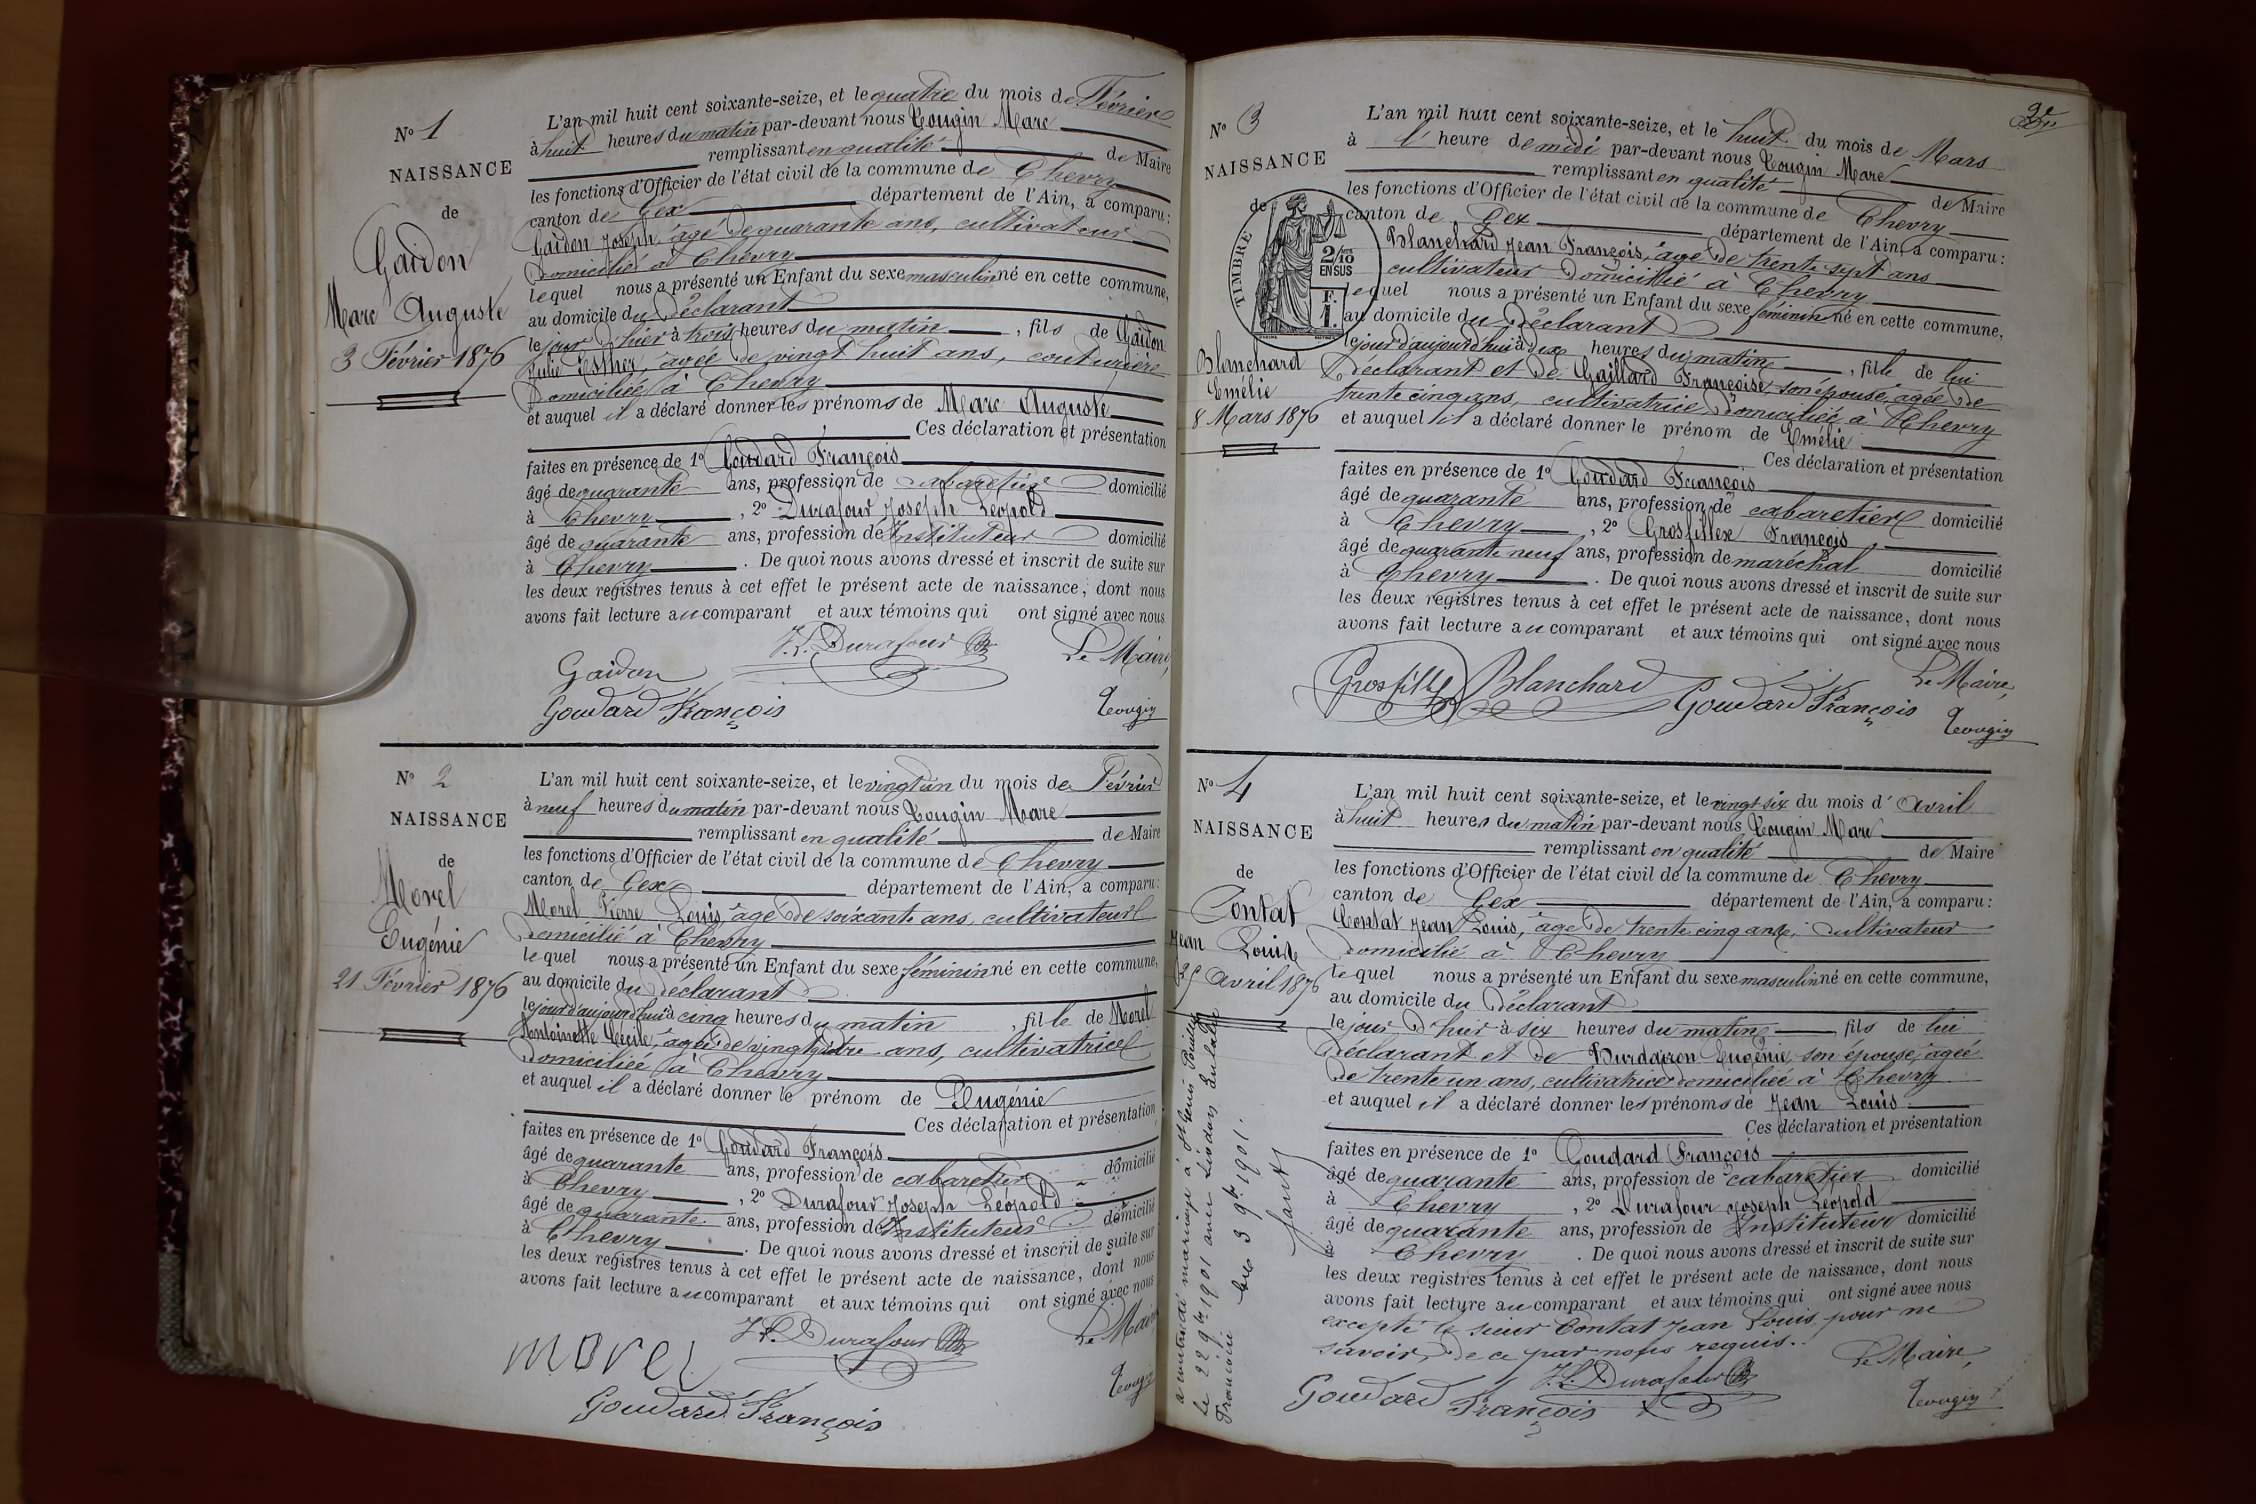 N° 1
NAISSANCE
de
Gaidon
Marc Auguste
3 Février 1876
L'an mil huit cent soixante-seize, et le quatre du mois de Février
à huit heures du matin par-devant nous Tougin Marc
remplissant en qualité de Maire
les fonctions d'Officier de l'état civil de la commune de Chevry
canton de Gex département de l'Ain, a comparu:
Gaidon Joseph, âgé de quarante ans, cultivateur
domicilié à Chevry
lequel nous a présenté un Enfant du sexe masculin né en cette commune,
au domicile du Déclarant
le jour d'hier à trois heures du matin, fils de Gaidon
Julie Esther, âgée de vingt huit ans, couturière
domiciliée à Chevry
et auquel il a déclaré donner les prénoms de Marc Auguste
Ces déclaration et présentation
faites en présence de 1° Goudard François
âgé de quarante ans, profession de cabaretier domicilié
à Chevry, 2° Durafour Joseph Léopold
âgé de quarante ans, profession de Instituteur domicilié
à Chevry. De quoi nous avons dressé et inscrit de suite sur
les deux registres tenus à cet effet le présent acte de naissance, dont nous
avons fait lecture au comparant et aux témoins qui ont signé avec nous
J. L. Durafour Le Maire,
Gaidon
Goudard François Tougin
N° 2
NAISSANCE
de
Morel
Eugénie
21 Février 1876
L'an mil huit cent soixante-seize, et le vingt un du mois de Février
à neuf heures du matin par-devant nous Tougin Marc
remplissant en qualité de Maire
les fonctions d'Officier de l'état civil de la commune de Chevry
canton de Gex département de l'Ain, a comparu:
Morel Pierre Louis âgé de soixante ans, cultivateur
domicilié à Chevry
lequel nous a présenté un Enfant du sexe féminin né en cette commune,
au domicile du déclarant
le jour d'aujourd'hui à cinq heures du matin, fille de Morel
Antoinette Cécile, âgée de vingt quatre ans, cultivatrice
domiciliée à Chevry
et auquel il a déclaré donner le prénom de Eugénie
Ces déclaration et présentation
faites en présence de 1° Goudard François
âgé de quarante ans, profession de cabaretier domicilié
à Chevry, 2° Durafour Joseph Léopold
âgé de quarante ans, profession de Instituteur domicilié
à Chevry. De quoi nous avons dressé et inscrit de suite sur
les deux registres tenus à cet effet le présent acte de naissance, dont nous
avons fait lecture au comparant et aux témoins qui ont signé avec nous
J. L. Durafour Le Maire
morel
Goudard François Tougin
N° 3
NAISSANCE
de
TIMBRE
2/10
EN SUS
F.
1.
Blanchard
Emélie
8 Mars 1876
L'an mil huit cent soixante-seize, et le huit du mois de Mars
à l' heure de midi par-devant nous Tougin Marc
remplissant en qualité de Maire
les fonctions d'Officier de l'état civil de la commune de Chevry
canton de Gex département de l'Ain, a comparu:
Blanchard Jean François, âgé de trente sept ans
cultivateur domicilié à Chevry
lequel nous a présenté un Enfant du sexe féminin né en cette commune,
au domicile du Déclarant
le jour d'aujourd'hui à dix heures du matin, fille de lui
déclarant et de Gaillard Françoise, son épouse, âgée de
trente cinq ans, cultivatrice domiciliée à Chevry
et auquel il a déclaré donner le prénom de Emélie
Ces déclaration et présentation
faites en présence de 1° Goudard François
âgé de quarante ans, profession de cabaretier domicilié
à Chevry, 2° Grosfillex François
âgé de quarante neuf ans, profession de maréchal domicilié
à Chevry. De quoi nous avons dressé et inscrit de suite sur
les deux registres tenus à cet effet le présent acte de naissance, dont nous
avons fait lecture au comparant et aux témoins qui ont signé avec nous
Grosfillex Blanchard Goudard François Le Maire,
Tougin
N° 4
NAISSANCE
de
Contat
Jean Louis
25 Avril 1876
L'an mil huit cent soixante-seize, et le vingt-six du mois d'Avril
à huit heures du matin par-devant nous Tougin Marc
remplissant en qualité de Maire
les fonctions d'Officier de l'état civil de la commune de Chevry
canton de Gex département de l'Ain, a comparu:
Contat Jean Louis, âgé de trente cinq ans, cultivateur
domicilié à Chevry
lequel nous a présenté un Enfant du sexe masculin né en cette commune,
au domicile du Déclarant
le jour d'hier à six heures du matin fils de lui
déclarant et de Burdairon Eugénie son épouse, âgée
de trente un ans, cultivatrice domiciliée à Chevry
et auquel il a déclaré donner les prénoms de Jean Louis
Ces déclaration et présentation
faites en présence de 1° Goudard François
âgé de quarante ans, profession de cabaretier domicilié
à Chevry, 2° Durafour Joseph Léopold
âgé de quarante ans, profession de Instituteur domicilié
à Chevry. De quoi nous avons dressé et inscrit de suite sur
les deux registres tenus à cet effet le présent acte de naissance, dont nous
avons fait lecture au comparant et aux témoins qui ont signé avec nous
excepté le sieur Contat Jean Louis pour ne
savoir, de ce par nous requis.
J. L. Durafour Le Maire,
Goudard François Tougin
a contracté mariage à St Genis Pouilly
Le 22 9bre 1901 avec
Françoise
3 9bre 1901.